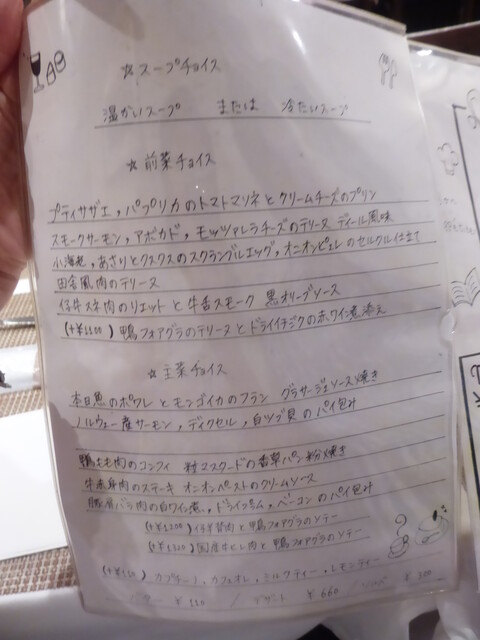 ☆スープチョイス
温かいスープ または 冷たいスープ
☆前菜チョイス
プティサザエ，パプリカのトマトマリネとクリームチーズのプリン
スモークサーモン，アボカド，モッツァレラチーズのテリーヌ ディール風味
小海老，あさりとクスクスのスクランブルエッグ，オニオンピュレのセルクル仕立て
田舎風肉のテリーヌ
仔牛スネ肉のリエットと牛舌スモーク 黒オリーブソース
(+¥1100) 鴨フォアグラのテリーヌとドライイチジクの赤ワイン煮添え
☆主菜チョイス
本日魚のポワレとモンゴイカのフラン グラサージュソース焼き
ノルウェー産サーモン，ディクセル，白ツブ貝のパイ包み
鴨もも肉のコンフィ 粒マスタードの香草パン粉焼き
牛赤身肉のステーキ オニオンペーストのクリームソース
豚肩バラ肉の白ワイン煮，ドライりんご，ベーコンのパイ包み
仔羊背肉と鴨フォアグラのソテー
国産牛ヒレ肉と鴨フォアグラのソテー
カプチーノ，カフェオレ，ミルクティー，レモンティー
¥110 / デザート ¥660